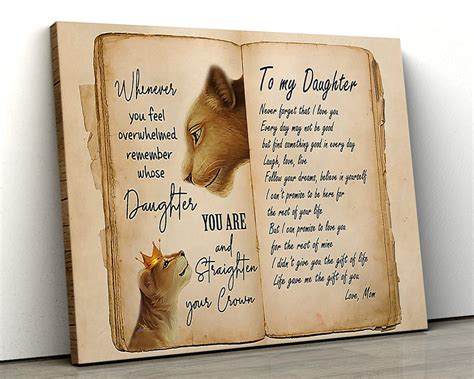 Whenever
you feel
overwhelmed
remember
whose
Daughter
YOU ARE
and
Straighten
your Crown
To my Daughter
Never forget that I love you
Every day may not be good
but find something good in every day
Laugh, love, live
Follow your dreams, believe in yourself
I can't promise to be here for
the rest of your life
But I can promise to love you
for the rest of mine
I didn't give you the gift of life
Life gave me the gift of you
Love, Mom